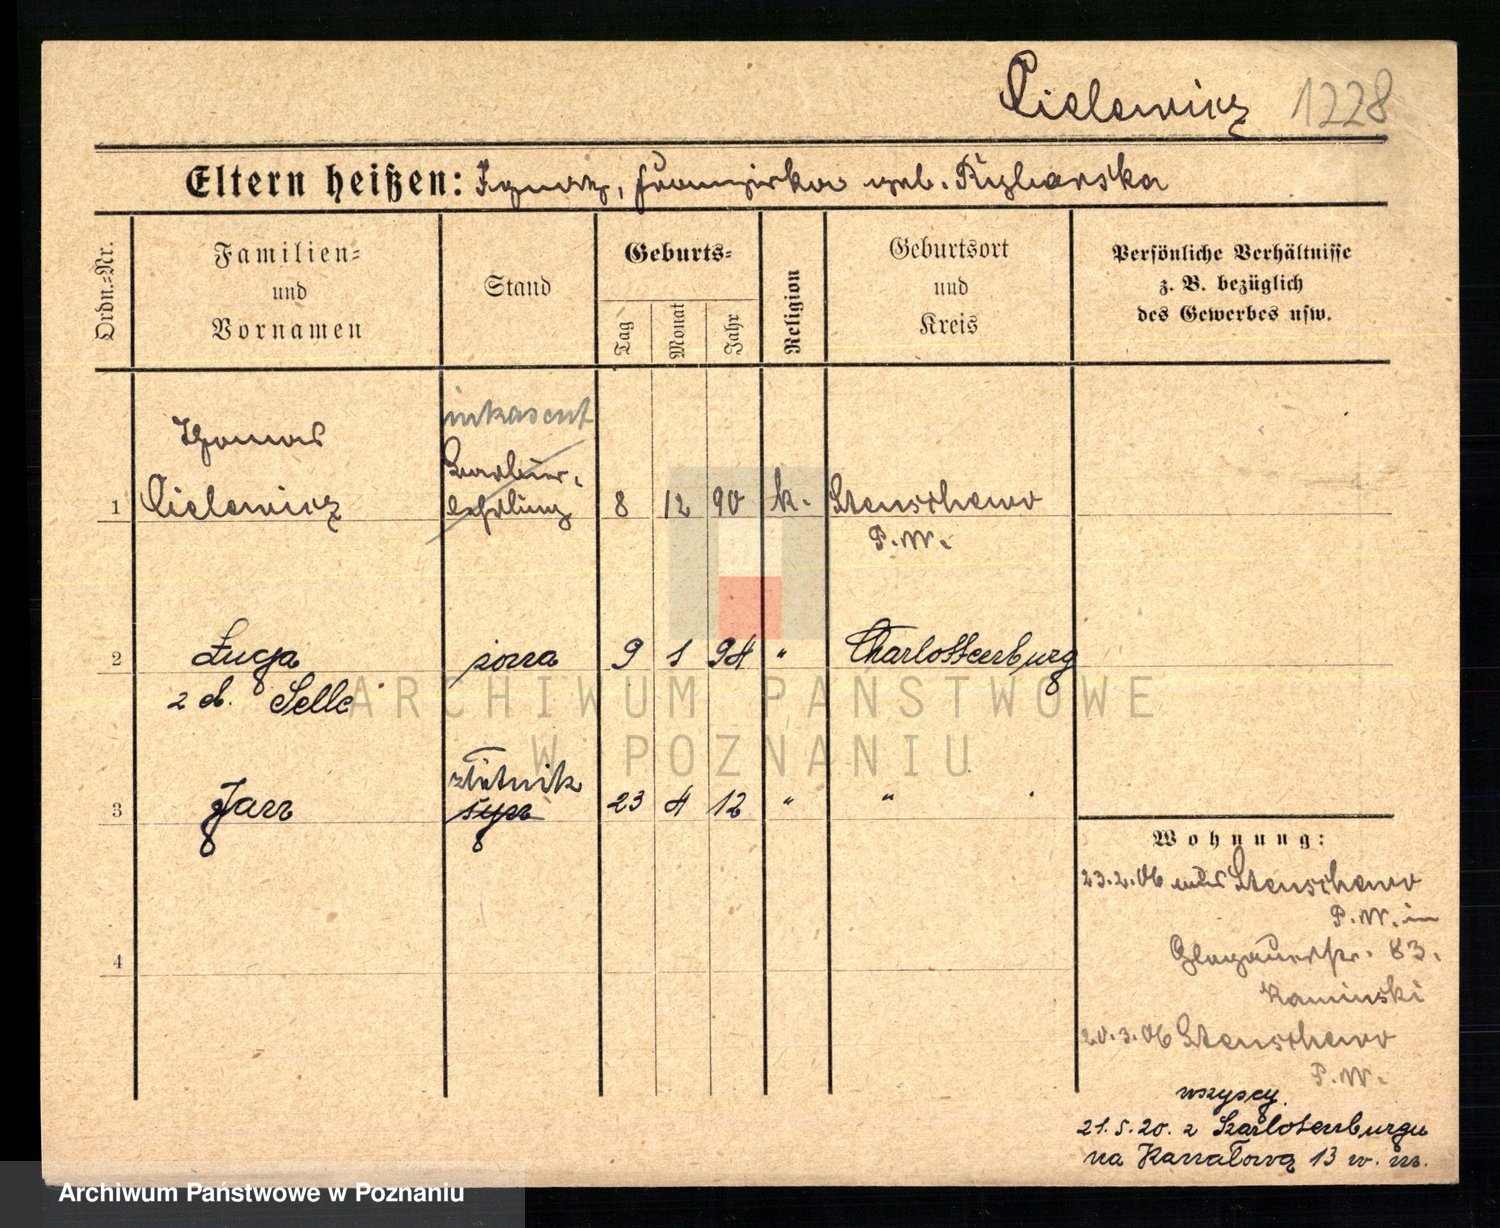 Cielewicz 1228
Eltern heißen: Ignatz, Franziska geb.
Ordn.=Nr.
Familien=
und
Vornamen
Stand
Geburts=
Tag
Monat
Jahr
Religion
Geburtsort
und
Kreis
Persönliche Verhältnisse
z. B. bezüglich
des Gewerbes usw.
inkasent
Thomas
Barbier-
1 Cielewicz lehrling 8 12 90 k. Stenschewo
P. W.
2 Luga żona 9 1 94 " Charlottenburg
z d. Selle
złotnik
3 Jan syn 23 4 12 " "
4
Wohnung:
23.2.06 aus Stenschewo
P. W. in
Glogauerstr. 83.
Kaminski
20.3.06 Stenschewo
P. W.
wszyscy
21.5.20. z Szarlotenburgu
na Kanałową 13 w. m.
ARCHIWUM PAŃSTWOWE
W POZNANIU
Archiwum Państwowe w Poznaniu